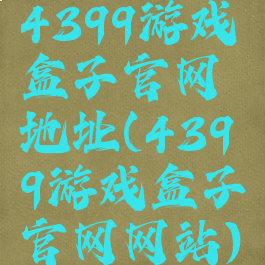 4399游戏
盒子官网
地址(439
9游戏盒子
官网网站)